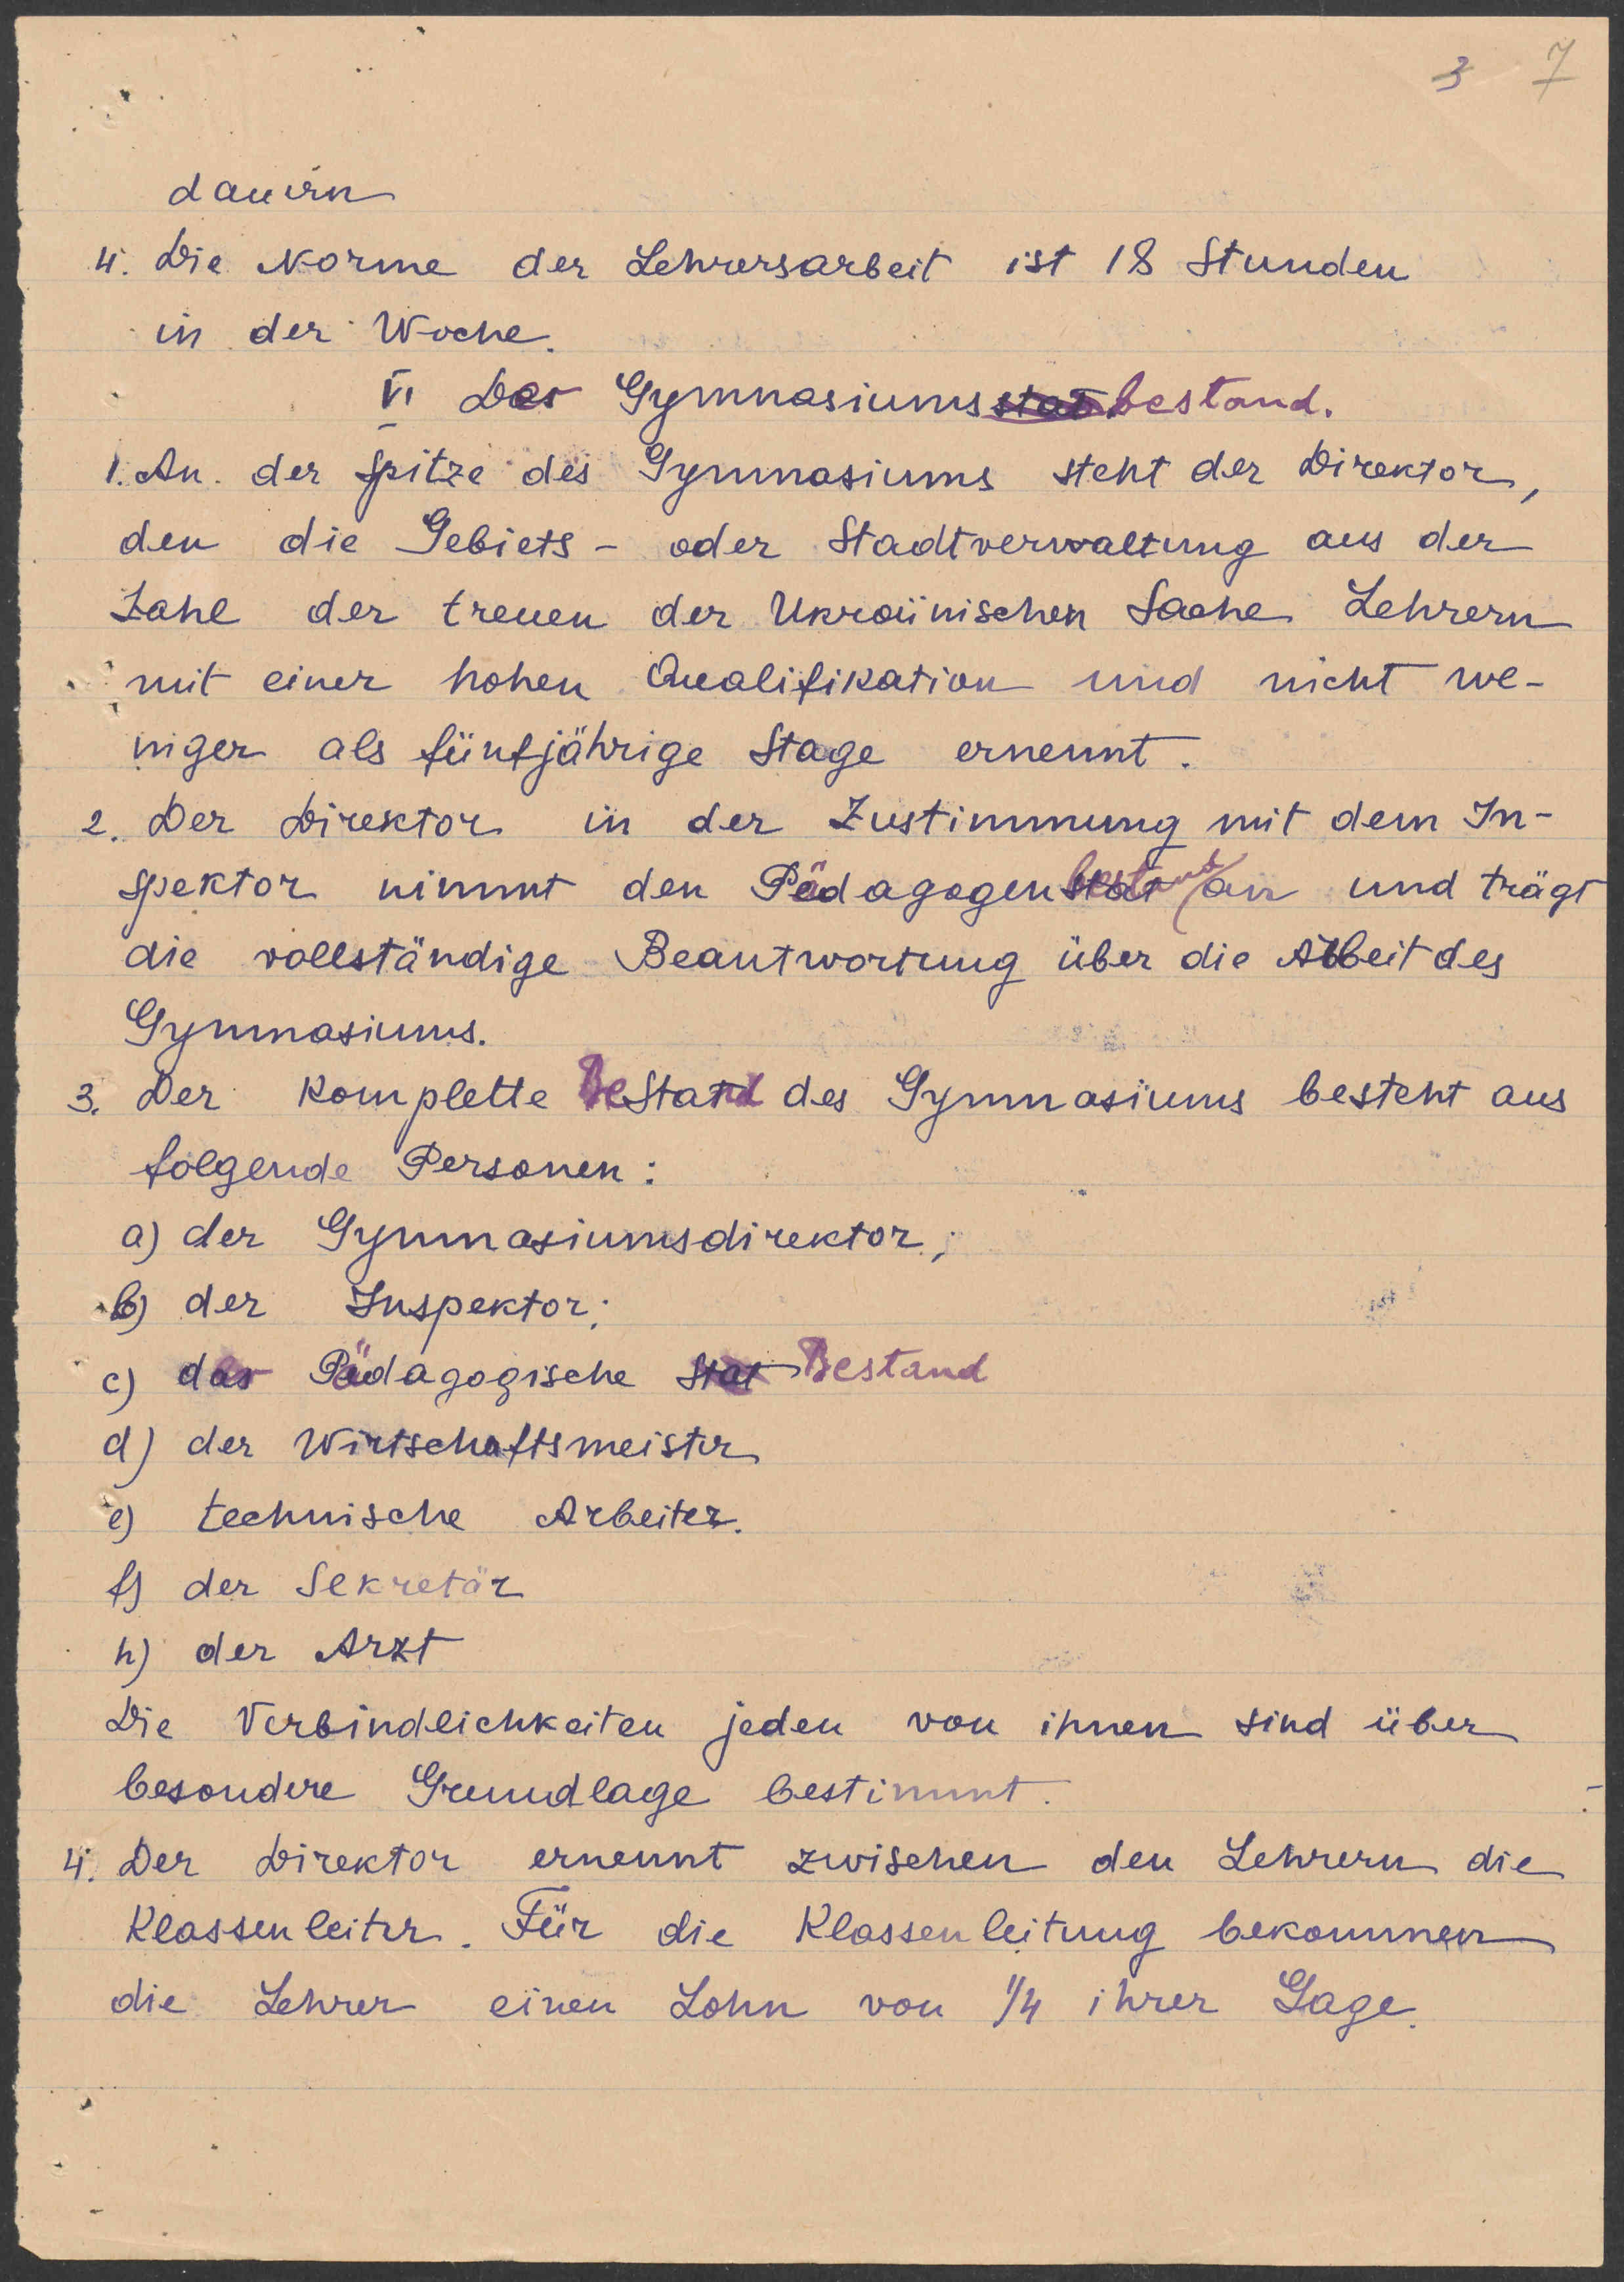 3 7
dauern
4. Die Norme der Lehrersarbeit ist 18 Stunden
in der Woche.
VI Der Gymnasiumsstat bestand.
1. An der Spitze des Gymnasiums steht der Direktor,
den die Gebiets- oder Stadtverwaltung aus der
Zahl der treuen der Ukrainischen Sache Lehrern
mit einer hohen Qualifikation und nicht we-
niger als fünfjährige Stage ernennt.
2. Der Direktor in der Zustimmung mit dem In-
spektor nimmt den Pädagogenstat bestand an und trägt
die vollständige Beantwortung über die Arbeit des
Gymnasiums.
3. Der komplette Bestand des Gymnasiums besteht aus
folgende Personen:
a) der Gymnasiumsdirektor,
b) der Inspektor;
c) der Pädagogische Stat Bestand
d) der Wirtschaftsmeister
e) technische Arbeiter.
f) der Sekretär
h) der Arzt
Die Verbindlichkeiten jeden von ihnen sind über
besondere Grundlage bestimmt.
4. Der Direktor ernennt zwischen den Lehrern die
Klassenleiter. Für die Klassenleitung bekommen
die Lehrer einen Lohn von 1/4 ihrer Gage.